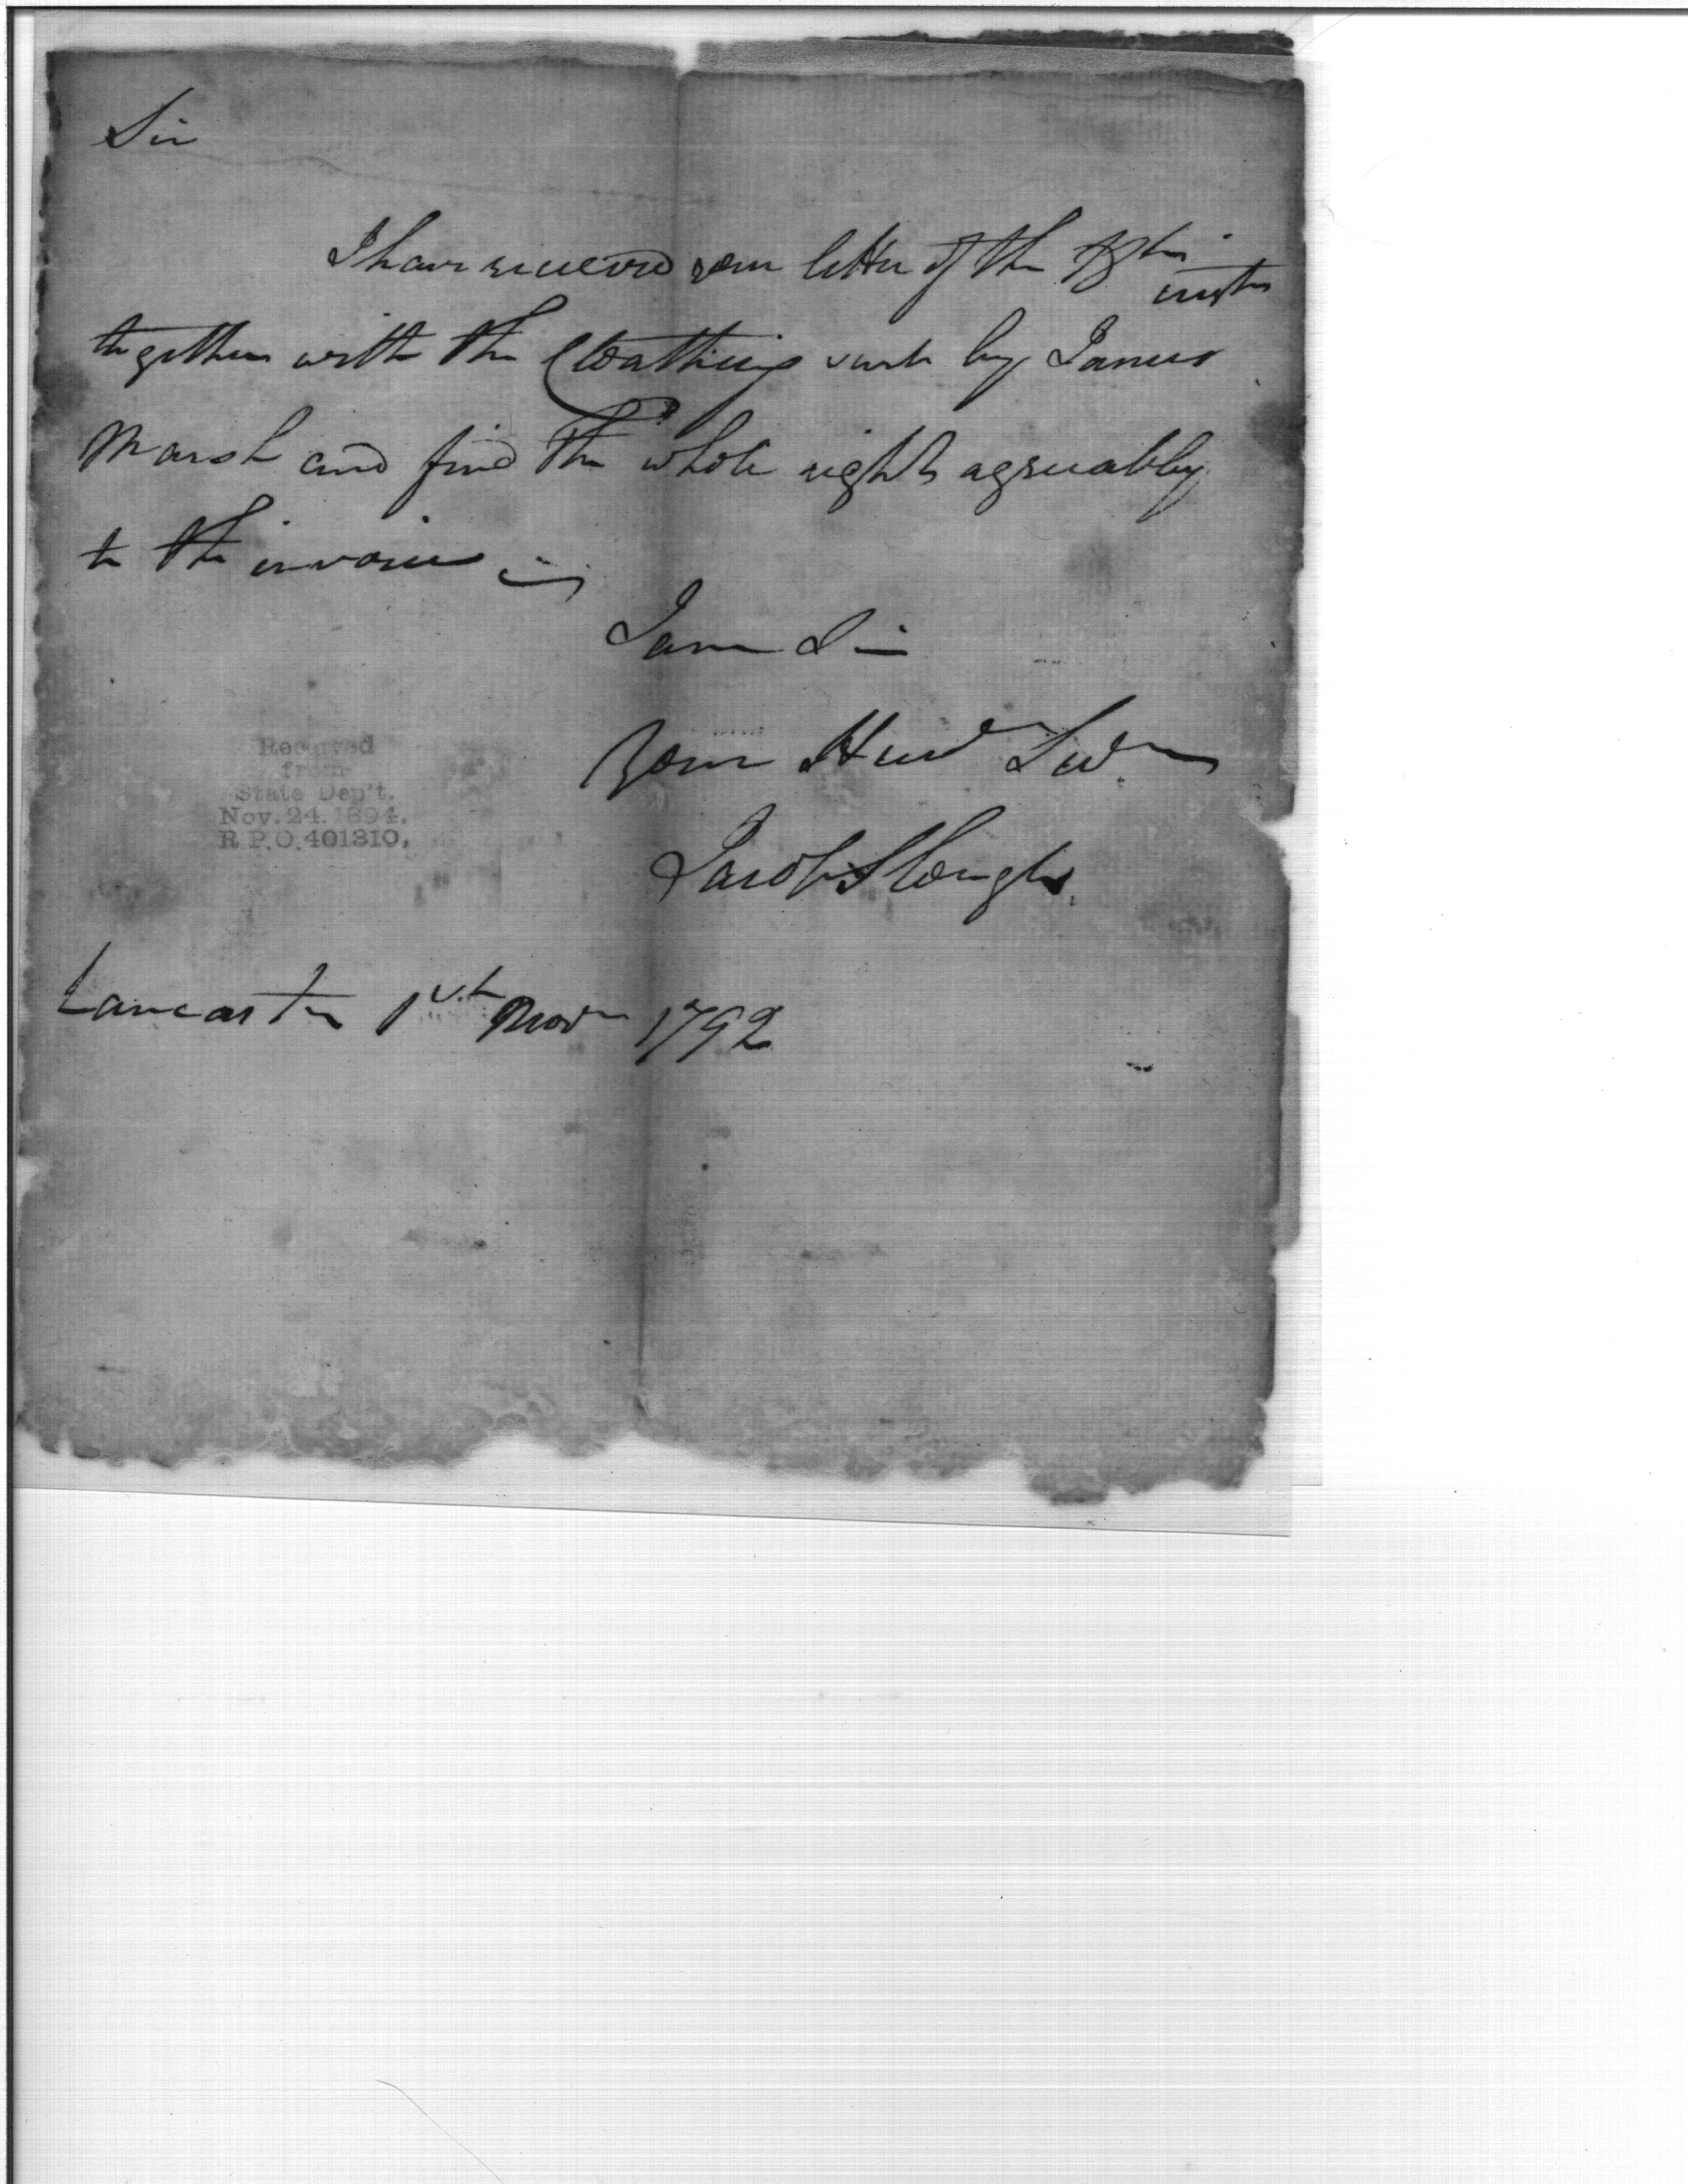 Sir
I have received your letter of the
inst
together with the Cloathing sent by James
Marsh and find the whole right agreeably
to the invoice
I am Sir
Your Hue Ser
Jacob Slough
Lancaster 1st Novr 1792
Received
from
State Dep't.
Nov. 24. 1894.
R.P.O. 401310.